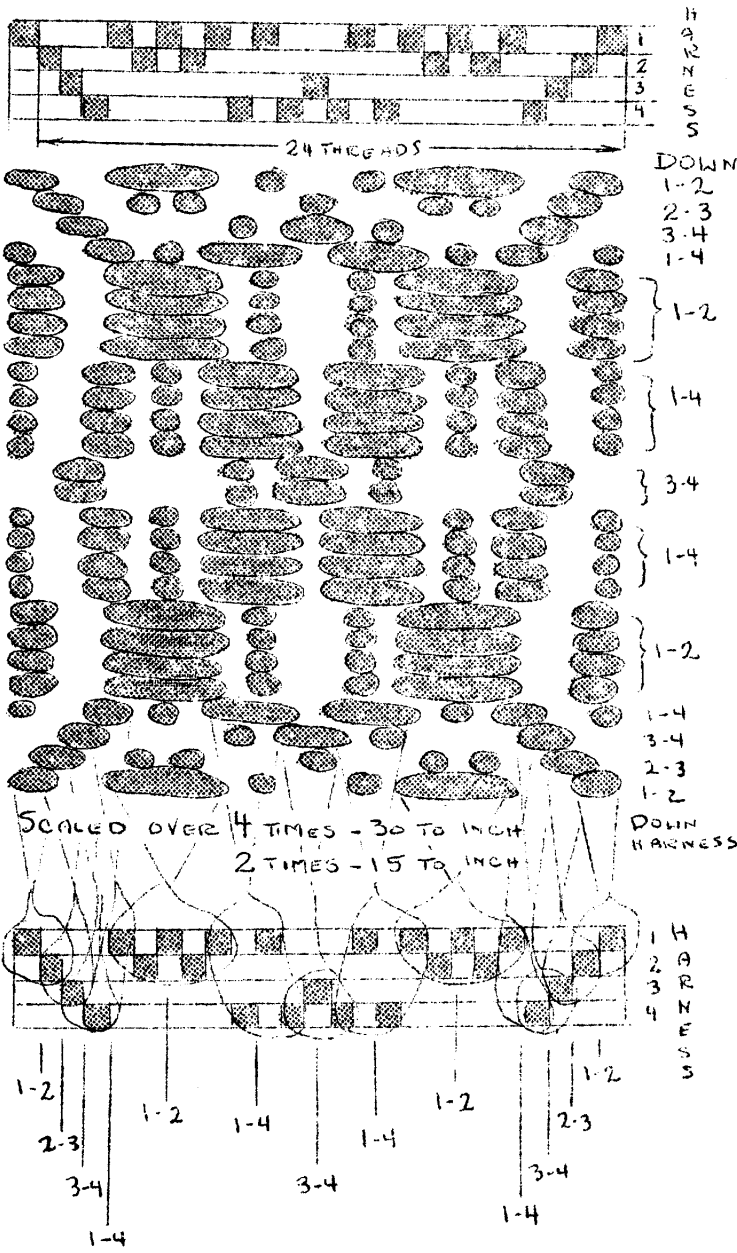 HARNESS
1
2
3
4
24 THREADS
DOWN
1-2
2-3
3-4
1-4
1-2
1-4
3-4
1-4
1-2
1-4
3-4
2-3
1-2
SCALED OVER 4 TIMES - 30 TO INCH
2 TIMES - 15 TO INCH
DOWN
HARNESS
HARNESS
1
2
3
4
1-2
2-3
3-4
1-4
1-2
1-4
3-4
1-4
1-2
1-4
3-4
2-3
1-2